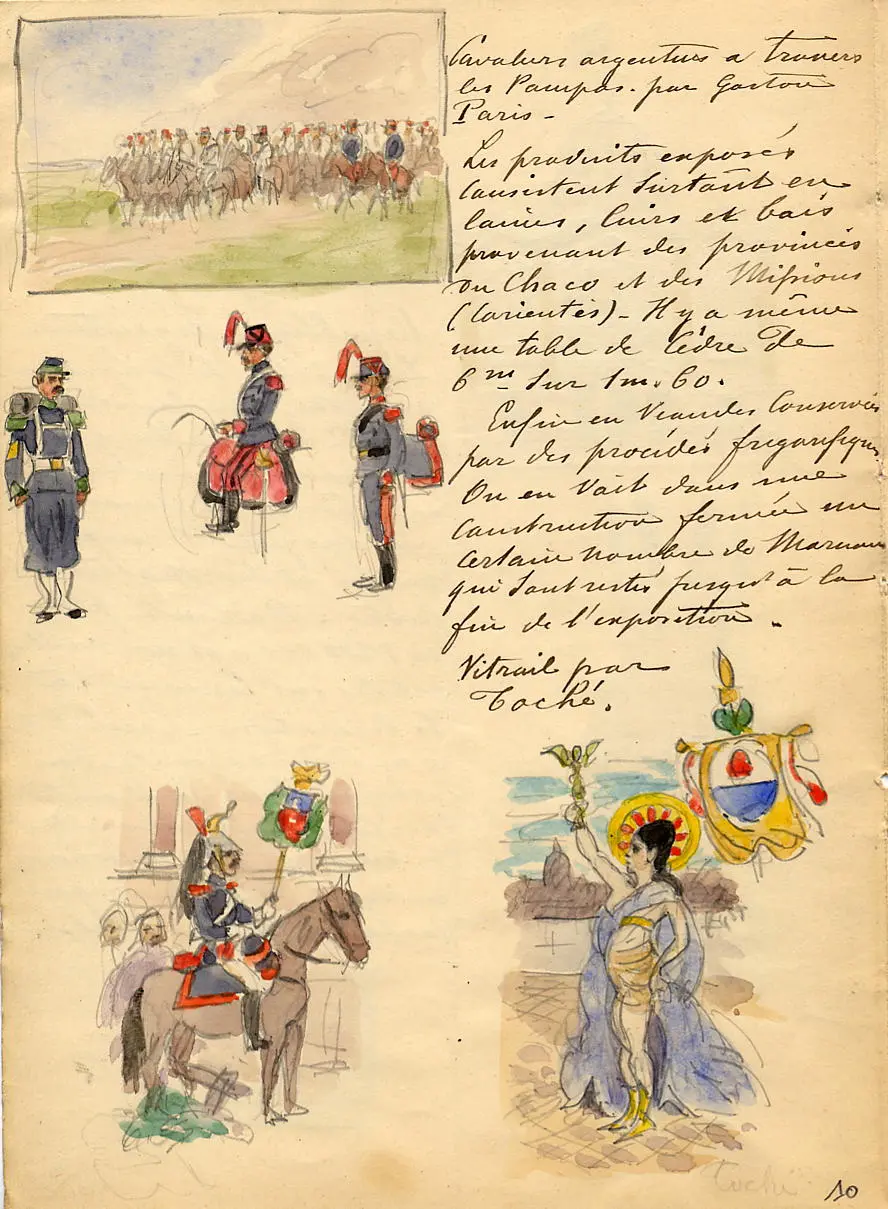 Cavaliers argentins à travers
les Pampas. par Gaston
Paris -
Les produits exposés
consistent surtout en
laines, cuirs et bois
provenant des provinces
du Chaco et des Missions
(Corientès) - Il y a même
une table de Cèdre de
6m sur 1m.60.
Enfin en Viandes Conservées
par des procédés frigorifiques
On en voit dans une
construction fermée un
certain nombre de
qui sont restés jusqu'à la
fin de l'exposition.
Vitrail par
Toché.
Toché
10